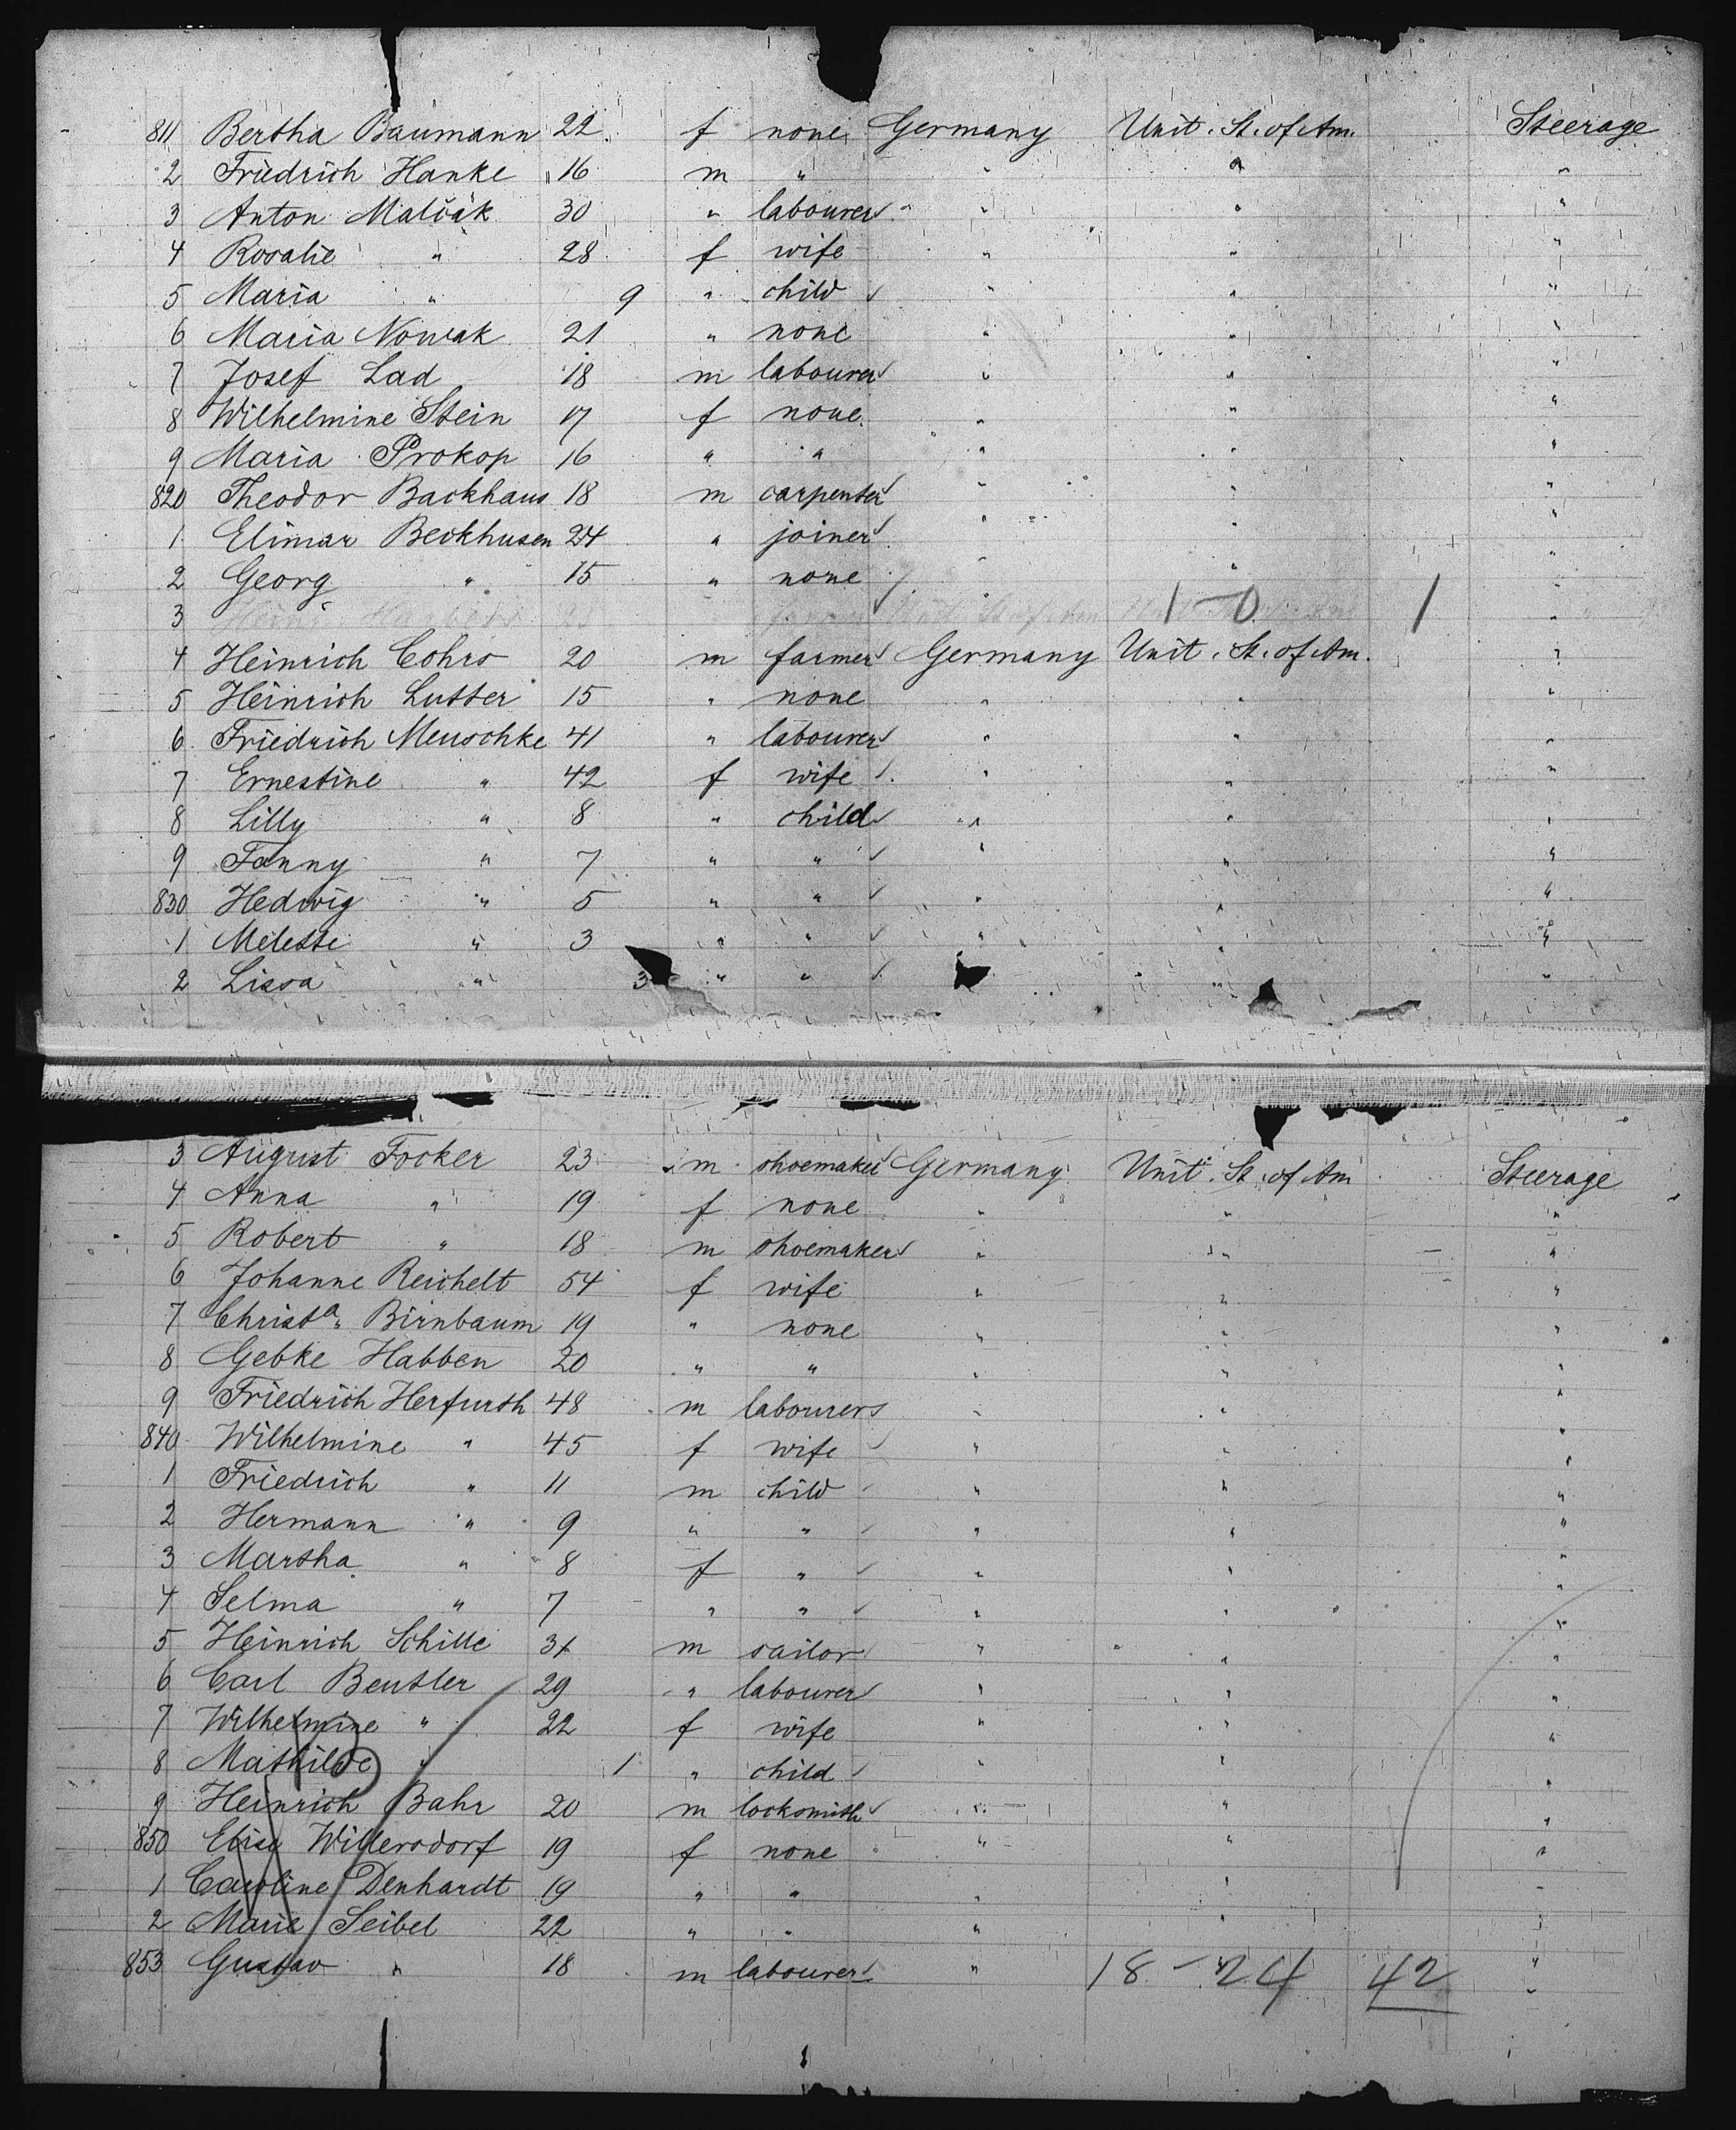 811 Bertha Baumann 22 f none Germany Unit. St. of Am. Steerage
2 Friedrich Hanke 16 m " " " "
3 Anton Malčák 30 " labourer " " "
4 Rosalie " 28 f wife " " "
5 Maria " 9 " child " " "
6 Maria Nowak 21 " none " " "
7 Josef Lad 18 m labourer " " "
8 Wilhelmine Stein 17 f none " " "
9 Maria Prokop 16 " " " " "
820 Theodor Backhaus 18 m carpenter " " "
1 Elimar Beckhusen 24 " joiner " " "
2 Georg " 15 " none " " "
3 1-0 1 "
4 Heinrich Cohrs 20 m farmer Germany Unit. St. of Am. "
5 Heinrich Lutter 15 " none " " "
6 Friedrich Meuschke 41 " labourer " " "
7 Ernestine " 42 f wife " " "
8 Lilly " 8 " child " " "
9 Fanny " 7 " " " " "
830 Hedwig " 5 " " " " "
1 Meletti " 3 " " " " "
2 Lissa " 3 " " " "
3 August Focker 23 m shoemaker Germany Unit. St. of Am Steerage
4 Anna " 19 f none " " "
5 Robert " 18 m shoemaker " " "
6 Johanne Reichelt 54 f wife " " "
7 Christa. Birnbaum 19 " none " " "
8 Gebke Habben 20 " " " " "
9 Friedrich Herfurth 48 m labourer " " "
840 Wilhelmine " 45 f wife " " "
1 Friedrich " 11 m child " " "
2 Hermann " 9 " " " " "
3 Martha " 8 f " " " "
4 Selma " 7 " " " " "
5 Heinrich Schille m sailor " " "
6 Carl Beutler 29 " labourer " " "
7 Wilhelmine " 22 f wife " " "
8 Mathilde " 1 " child " " "
9 Heinrich Bahr 20 m locksmith " " "
850 Elise Willersdorf 19 f none " " "
1 Caroline Denhardt 19 " " " " "
2 Marie Seibel 22 " " " " "
853 Gustav " 18 m labourer " 18-24 42 "